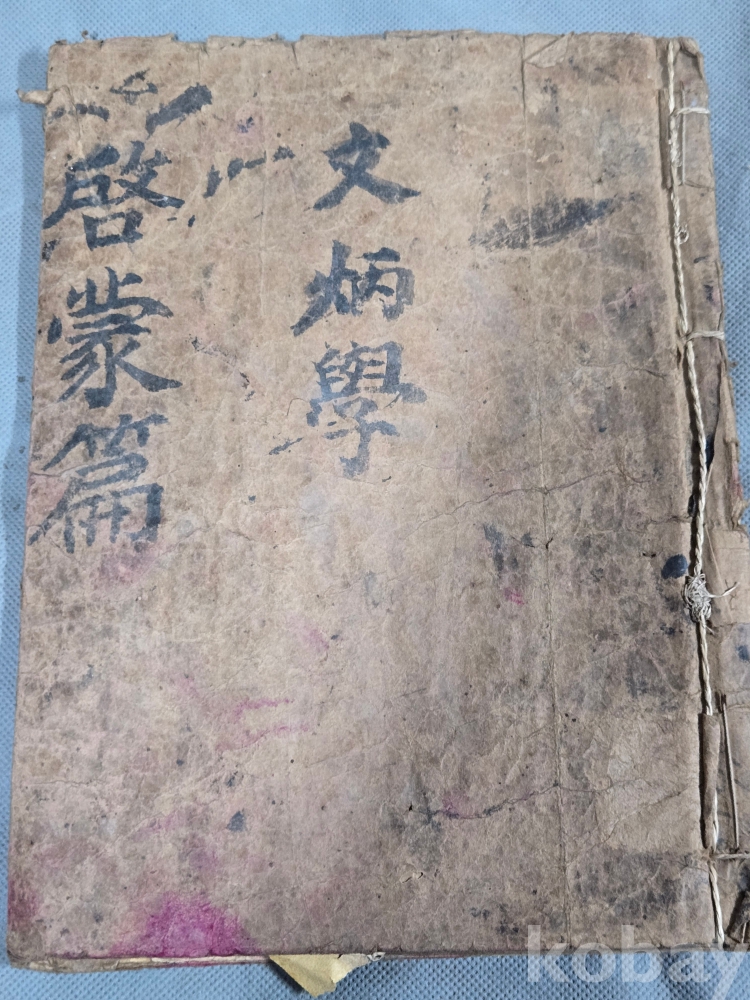 文炳學
啓蒙篇
kobay